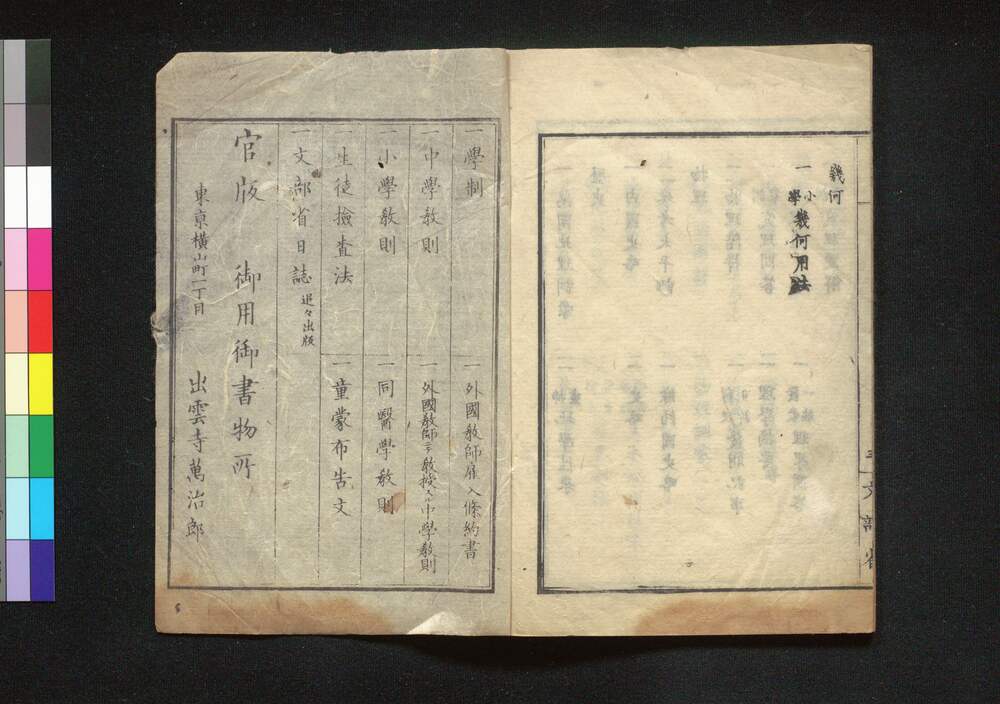 幾何
一 小學 幾何用法
文部省
一 學制
一 外國教師雇入條約書
一 中學教則
一 外國教師ニテ教授スル中學教則
一 小學教則
一 同醫學教則
一 生徒撿査法
一 童蒙布告文
一 文部省日誌 追々出版
官版 御用御書物所
東京横山町一丁目
出雲寺萬治郎